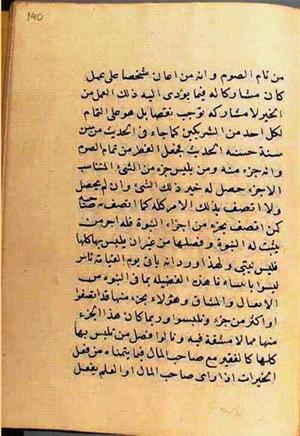 140
من تام الصوم وانه من اعان شخصا على عمل
كان مشاركا له فيما يؤدى اليه ذلك العمل من
الخير لا مشاركة توجب نقصا بل هو على التمام
لكل احد من الشريكين كما جاء فى الحديث من سن
سنة حسنة الحديث فجعل الفطر من تمام الصوم
وانه جزء منه ومن يلبس جزء من الشئ المتناسب
الاجزاء حصل له خير ذلك الشئ وان لم يحصل
ولا اتصف بذلك الامر كله كما اتصف به صاحبه
كمن اتصف بجزء من اجزاء النبوة فله اجر من
يثبت له النبوة وفضلها من غير ان يلبس بها كلها
فليس بنبى ولهذا ورد انه ياتى يوم القيامة ناس
ليسوا بانبياء نا هذا الفضيلة بما فى النبوة من
الافعال والمشاق وهؤلاء بجزء منها قد اتصفوا
او اكثر من جزء وتلبسوا وربما كان هذا الجزء
منها مما لا مشقة فيه ونالوا فضل من تلبس بها
كلها كالفقير مع صاحب المال فيما يتمناه من فعل
الخيرات اذا راى صاحب المال او العلم يفعل